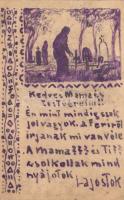 Kedves Mamács
Testvéreim!!
Én mint mindig csak
jól vagyok. a Feriről
írjanak mi van véle
A Mama??? és Ti??
csólkollak mind
nyájotok
Lajostok